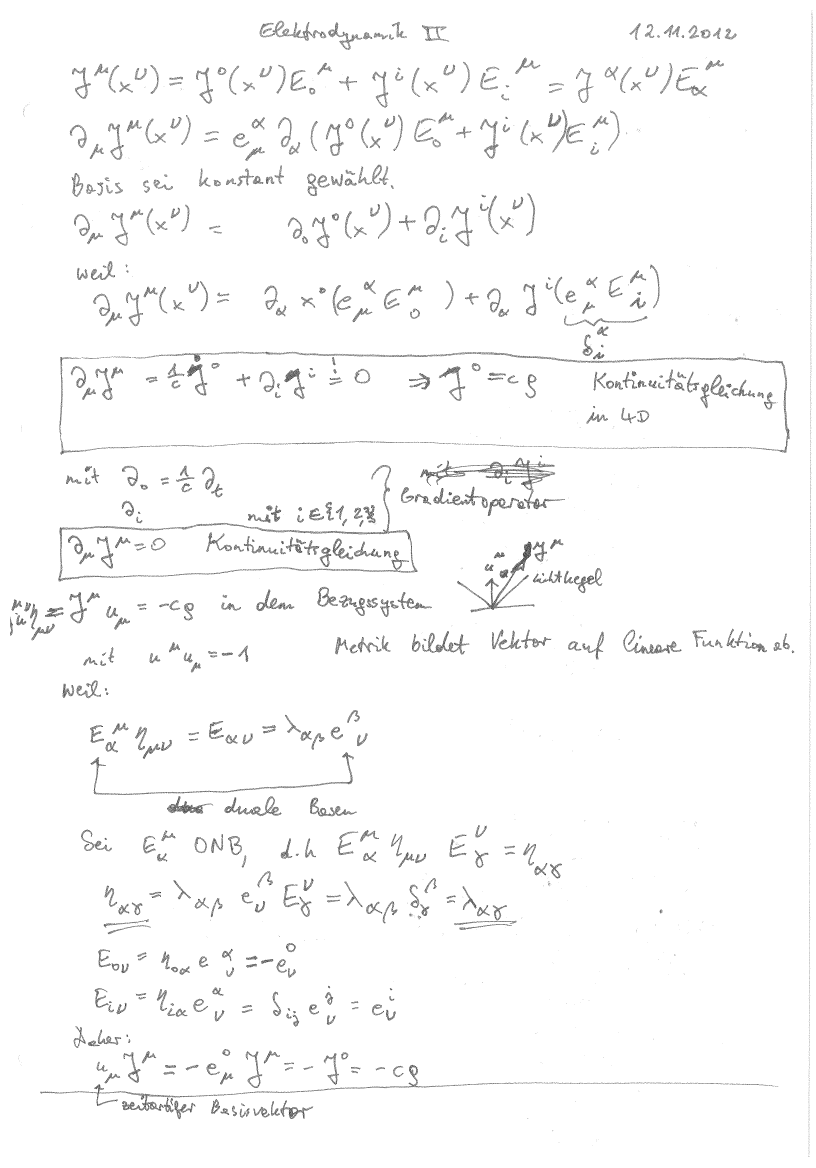 Elektrodynamik II 12.11.2012
J^μ(x^ν) = J^0(x^ν)E_0^μ + J^i(x^ν) E_i^μ = J^α(x^ν)E_α^μ
∂_μ J^μ(x^ν) = e_μ^α ∂_α (J^0(x^ν) E_0^μ + J^i(x^ν)E_i^μ)
Basis sei konstant gewählt.
∂_μ J^μ(x^ν) = ∂_0 J^0(x^ν) + ∂_i J^i(x^ν)
weil:
∂_μ J^μ(x^ν) = ∂_α x^0(e_μ^α E_0^μ) + ∂_α J^i(e_μ^α E_i^μ)
δ_i^α
∂_μ J^μ = 1/c J̇^0 + ∂_i J^i =! 0 ⇒ J^0 = cρ Kontinuitätsgleichung
in 4D
mit ∂_0 = 1/c ∂_t
∂_i mit i ∈ {1,2,3}
Gradientoperator
∂_μ J^μ = 0 Kontinuitätsgleichung
J^μ
u^μ
Lichtkegel
j^μ u^ν η_μν = J^μ u_μ = -cρ in dem Bezugssystem
mit u^μ u_μ = -1 Metrik bildet Vektor auf lineare Funktion ab.
weil:
E_α^μ η_μν = E_αν = λ_αβ e^β_ν
duale Basen
Sei E_α^μ ONB, d.h E_α^μ η_μν E_γ^ν = η_αγ
η_αγ = λ_αβ e_ν^β E_γ^ν = λ_αβ δ_γ^β = λ_αγ
E_0ν = η_0α e^α_ν = -e_ν^0
E_iν = η_iα e^α_ν = δ_ij e^j_ν = e_ν^i
Daher:
u_μ J^μ = -e_μ^0 J^μ = -J^0 = -cρ
zeitartiger Basisvektor